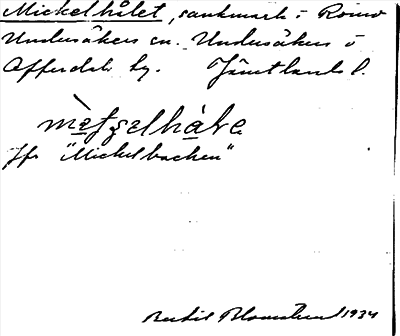 Mickelhålet, sankmark i Romo
Undersåkers sn. Undersåkers o
Offerdals tg. Jämtlands l.
mètselhàle
Jfr "Mickelbacken"
Bertil Blomstrand 1934